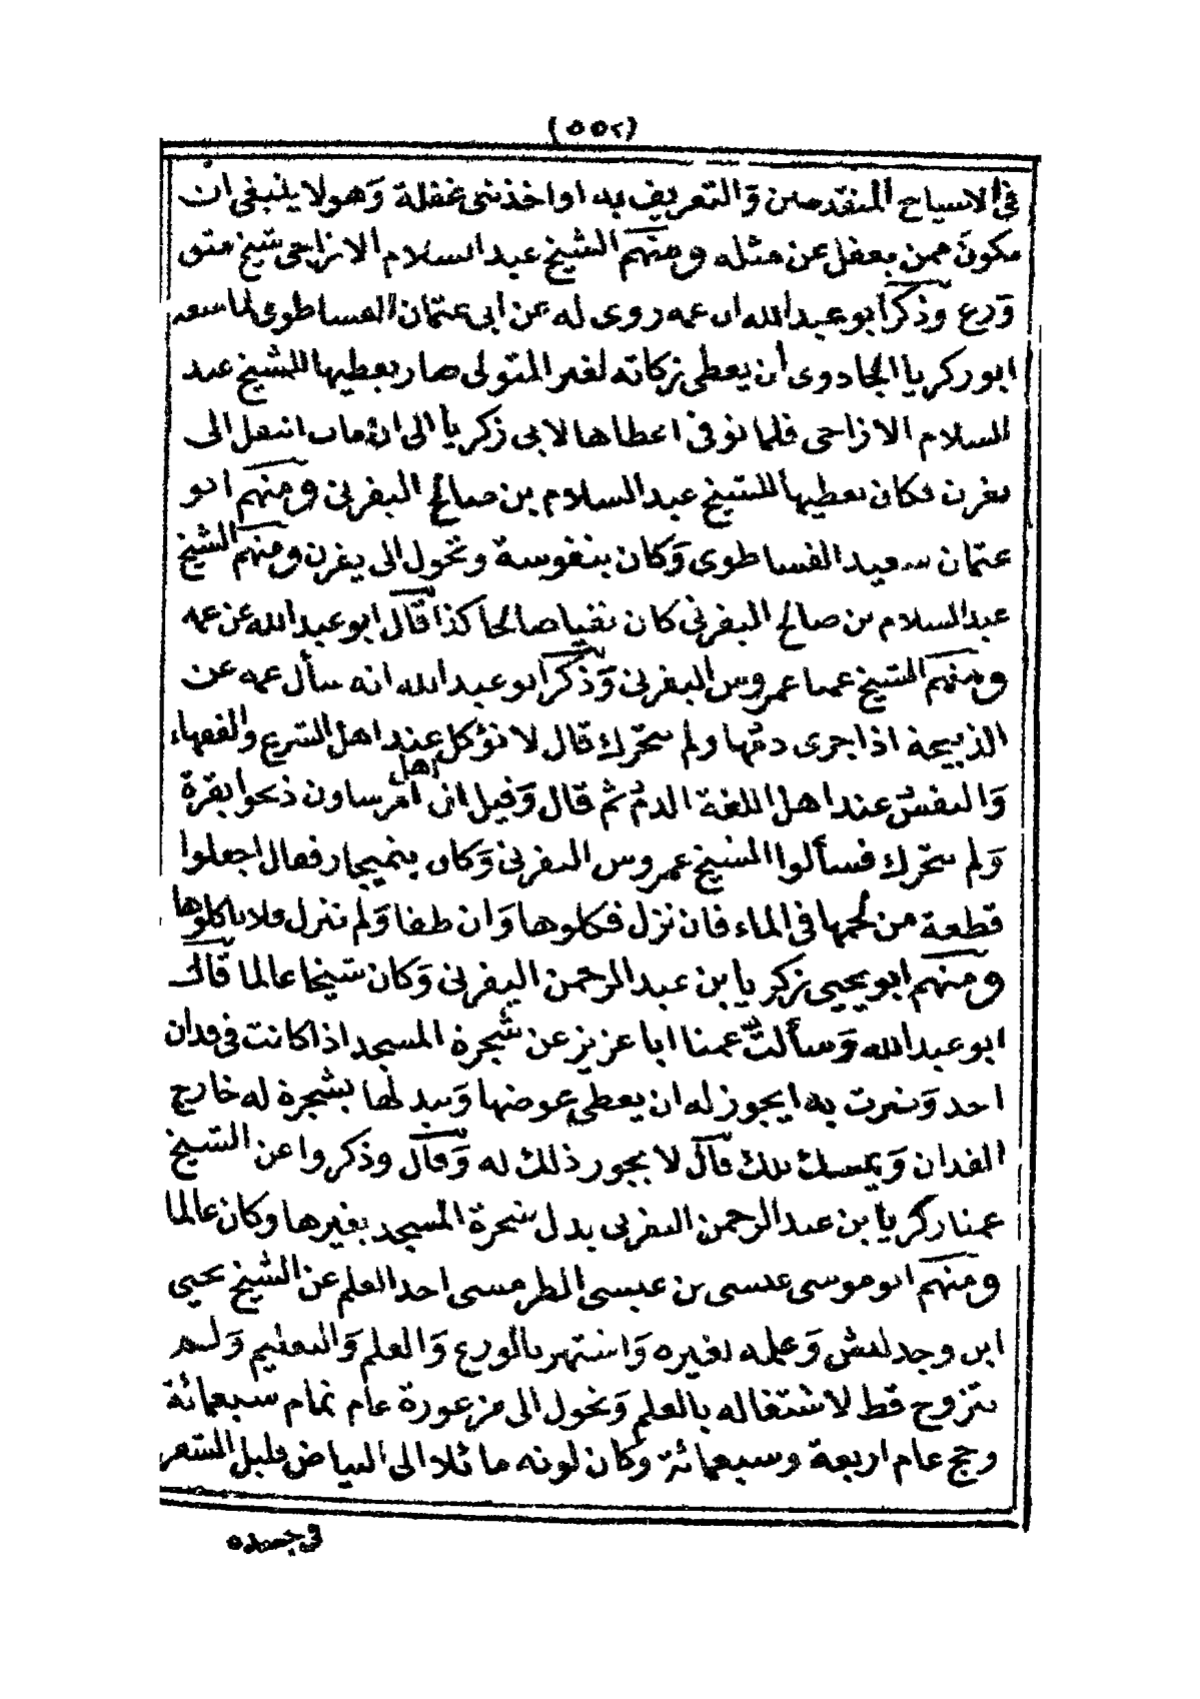 (٥٥٢)
في الاشياخ المتقدمين وَالتعريف به اواخذتنى غفلة وَهو لا ينبغى ان
يكون ممن يغفل عن مثله ومنهم الشيخ عبد السلام الازاجى شيخ متق
وَرع وَذكر ابو عبد الله ان عمه روى له عن ابى عثمان الفساطوى لما سعه
ابو زكريا الجادوى أن يعطى زكاته لغير المتولى صار يعطيها للشيخ عبد
السلام الازاجى فلما توفى اعطاها لابى زكريا الى ان مات انتقل الى
يفرن فكان يعطيها للشيخ عبد السلام بن صالح اليفرنى ومنهم ابو
عثمان سعيد الفساطوى وَكان بنفوسة وتحول الى يفرن ومنهم الشيخ
عبد السلام بن صالح اليفرنى كان تقيا صالحا كذا قال ابو عبد الله عن عمه
ومنهم الشيخ عمنا عمروس اليفرنى وَذكر ابو عبد الله انه سأل عمه عن
الذبيحة اذا جرى دمها ولم تتحرك قال لا تؤكل عند اهل الشرع والفقهاء
وَالنفس عند اهل اللغة الدم ثم قال وَقيل ان اهل امرساون ذبحوا بقرة
وَلم تتحرك فسألوا الشيخ عمروس اليفرنى وَكان بنميجار فقال اجعلوا
قطعة من لحمها فى الماء فان نزل فكلوها وَان طفا وَلم تنزل فلا تاكلوها
ومنهم ابو يحيى زكريا بن عبد الرحمن اليفرنى وَكان شيخا عالما قال
ابو عبد الله وَسألت عمنا ابا عزيز عن شجرة المسجد اذا كانت فى فدان
احد وَضرت به ايجوز له ان يعطى عوضها وَيبدلها بشجرة له خارج
الفدان وَيمسك تلك قال لا يجوز ذلك له وَقال وذكروا عن الشيخ
عمنا زكريا بن عبد الرحمن اليفرنى بدل شجرة المسجد بغيرها وكان عالما
ومنهم ابو موسى عيسى بن عيسى الطرمسى اخذ العلم عن الشيخ يحيى
ابن وجدليش وَعلمه لغيره وَاشتهر بالورع وَالعلم وَالتعليم وَلم
يتزوج قط لاشتغاله بالعلم وَتحول الى مزغورة عام تمام سبعمائة
وحج عام اربعة وسبعمائة وَكان لونه مائلا الى البياض قليل الشعر
فى جسده